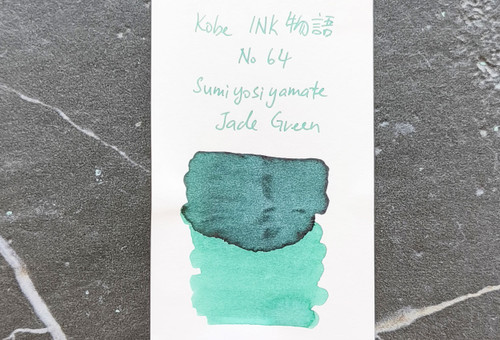 Kobe INK 物語
No 64
Sumiyosiyamate
Jade Green